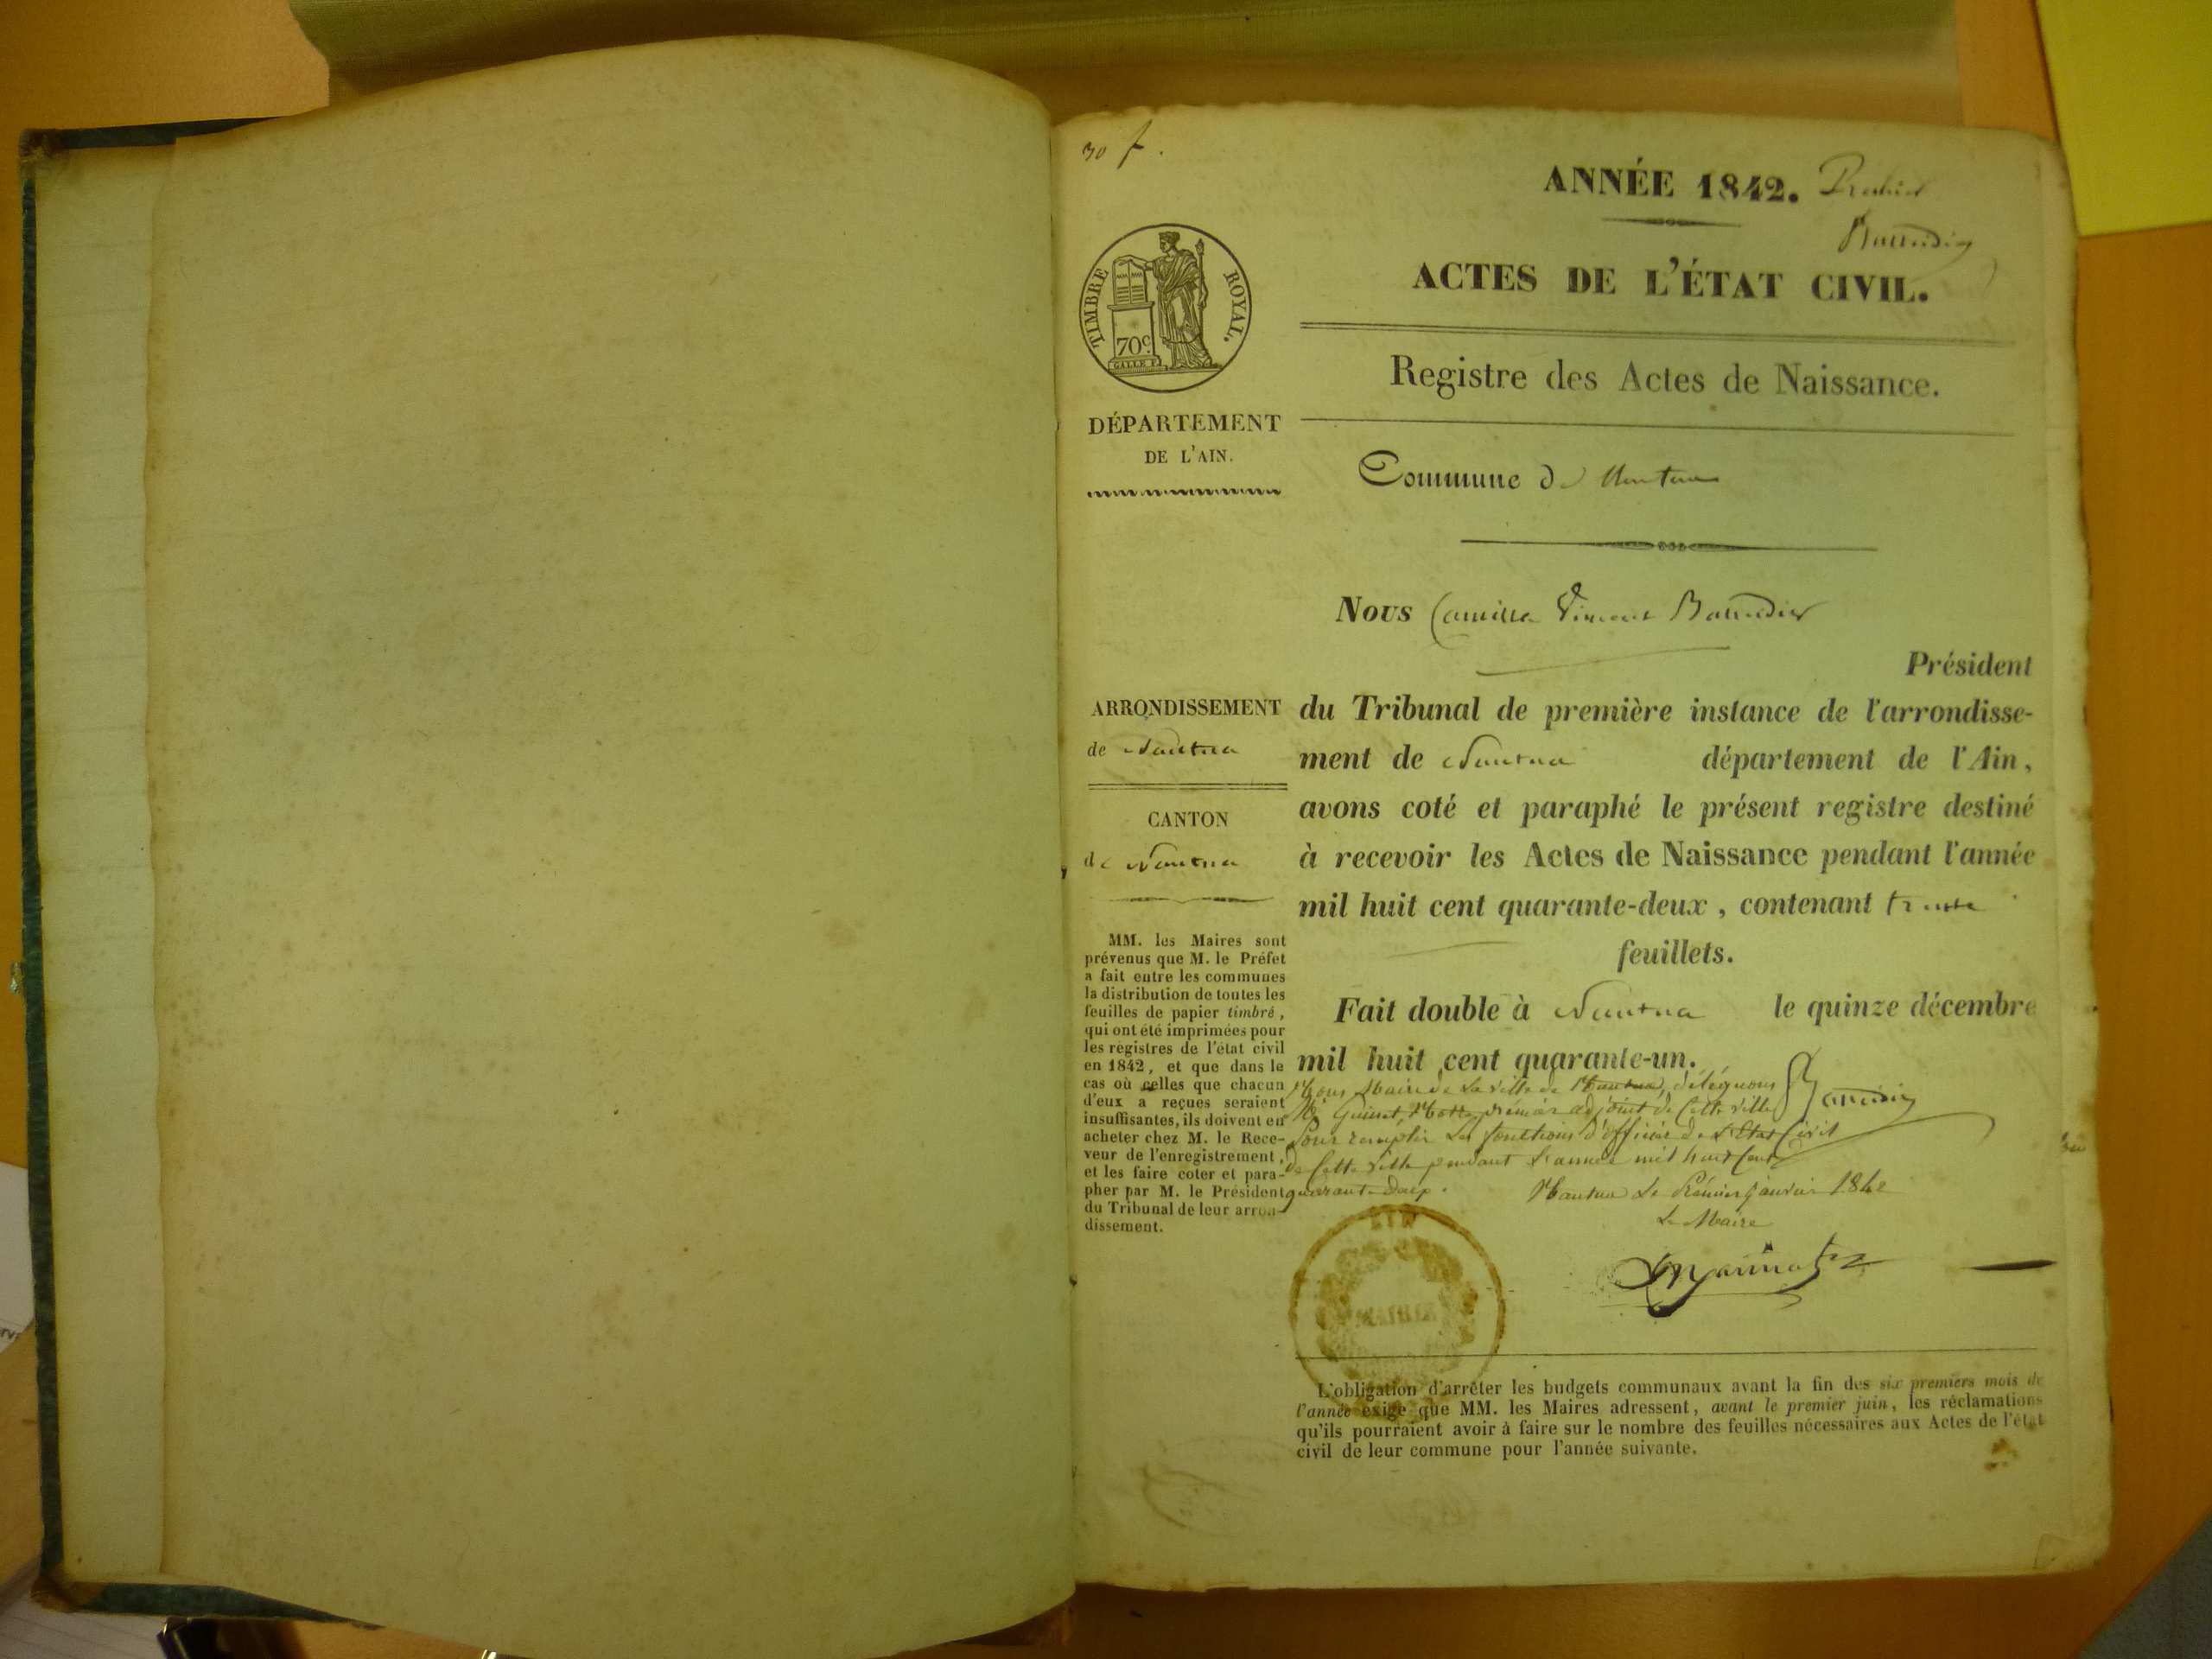 30 f.
ANNÉE 1842.
ACTES DE L'ÉTAT CIVIL.
Registre des Actes de Naissance.
TIMBRE ROYAL.
70c
DÉPARTEMENT
DE L'AIN.
Commune de Nantua
Nous Camille Vincent
Président
ARRONDISSEMENT
de Nantua
CANTON
de Nantua
du Tribunal de première instance de l'arrondisse-
ment de Nantua département de l'Ain,
avons coté et paraphé le présent registre destiné
à recevoir les Actes de Naissance pendant l'année
mil huit cent quarante-deux, contenant trente
feuillets.
Fait double à Nantua le quinze décembre
mil huit cent quarante-un.
MM. les Maires sont
prévenus que M. le Préfet
a fait entre les communes
la distribution de toutes les
feuilles de papier timbré,
qui ont été imprimées pour
les régistres de l'état civil
en 1842, et que dans le
cas où celles que chacun
d'eux a reçues seraient
insuffisantes, ils doivent en
acheter chez M. le Rece-
veur de l'enregistrement,
et les faire coter et para-
pher par M. le Président
du Tribunal de leur arron-
dissement.
Nous Maire de la ville de Nantua, déléguons
premier adjoint de cette ville
pour remplir les fonctions d'officier de l'Etat Civil
de cette ville pendant l'année mil huit cent
quarante-deux.
Nantua le Premier janvier 1842
Le Maire
AIN
MAIRIE
L'obligation d'arrêter les budgets communaux avant la fin des six premiers mois de
l'année exige que MM. les Maires adressent, avant le premier juin, les réclamations
qu'ils pourraient avoir à faire sur le nombre des feuilles nécessaires aux Actes de l'état
civil de leur commune pour l'année suivante.